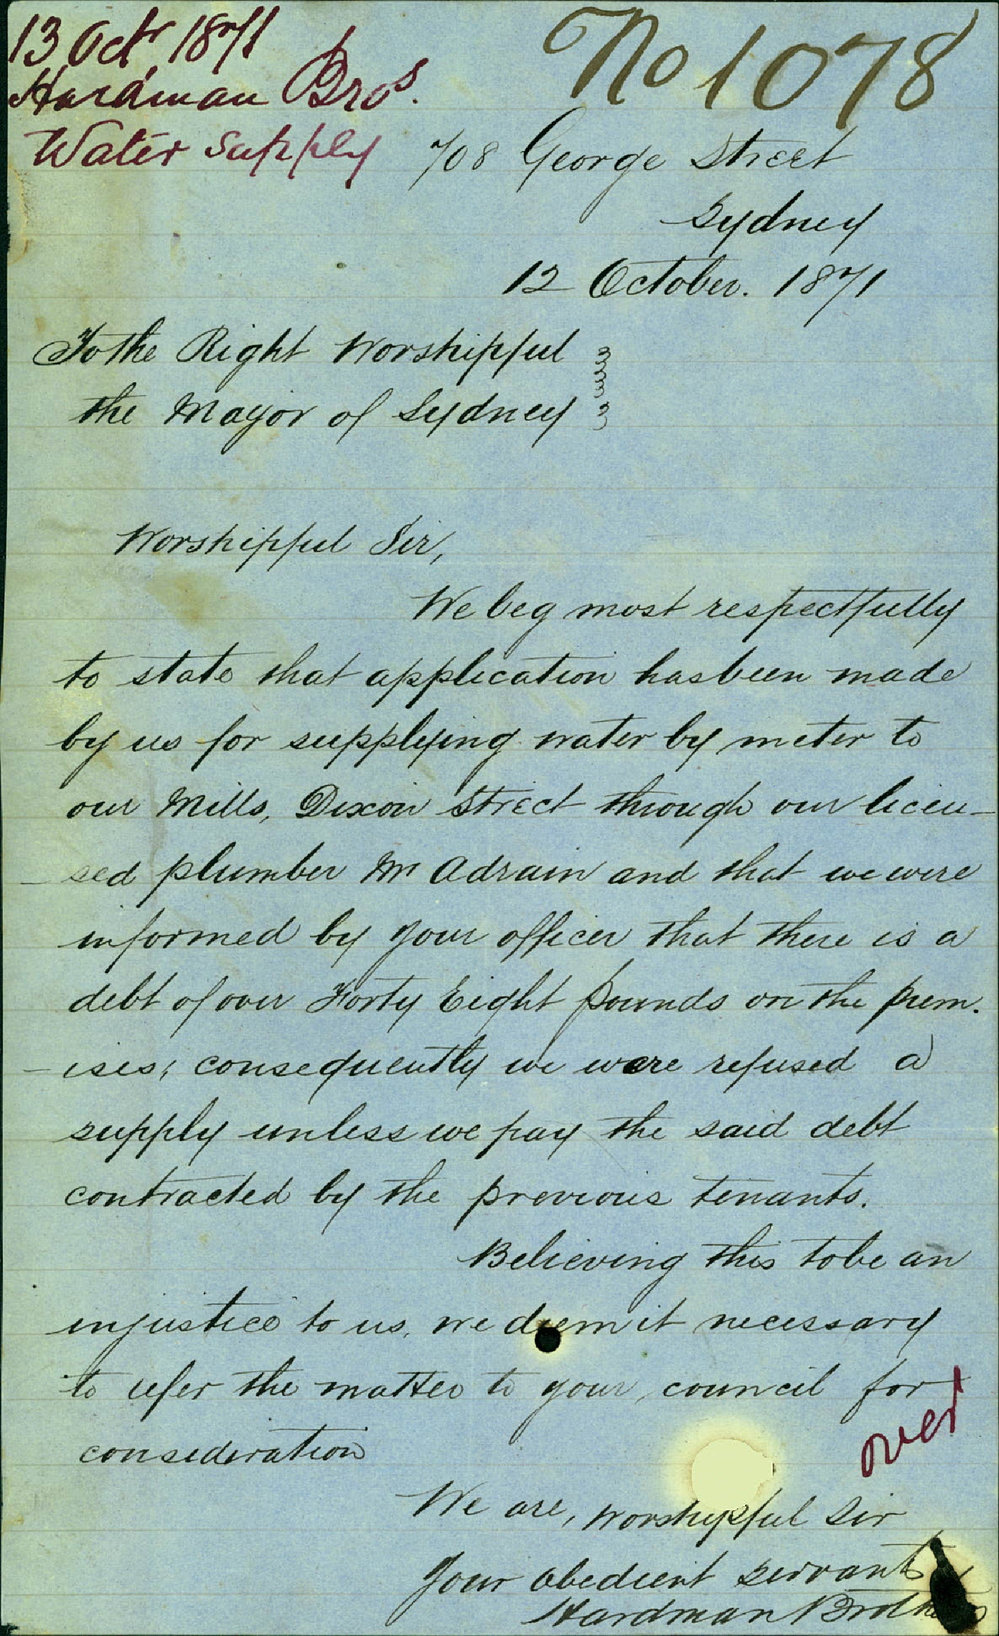 13 Octr 1871
Hardman Bros.
Water Supply
No 1078
708 George Street
Sydney
12 October. 1871
To the Right Worshipful
the Mayor of Sydney
Worshipful Sir,
We beg most respectfully
to state that application has been made
by us for supplying water by meter to
our Mills, Dixon Street through our licen-
-sed plumber Mr Adrain and that we were
informed by your officer that there is a
debt of over Forty Eight pounds on the prem.
-ises; consequently we were refused a
supply unless we pay the said debt
contracted by the previous tenants.
Believing this to be an
injustice to us, we deem it necessary
to refer the matter to your council for
consideration
over
We are, Worshipful Sir
Your obedient Servants
Hardman Brothers